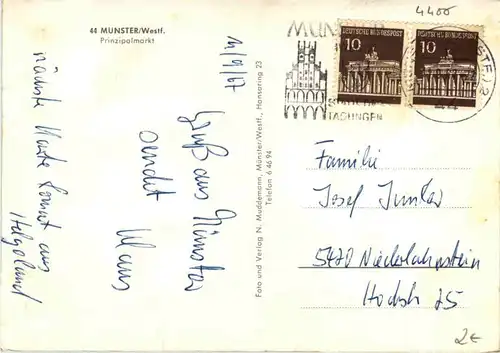 44 MÜNSTER/Westf.
Prinzipalmarkt
11/9/67
Gruß aus Münster
sendet
Klaus
nächste Karte kommt aus
Helgoland
Foto und Verlag N. Muddemann, Münster/Westf., Hansaring 23
Telefon 6 46 94
4400
MÜNSTER
TAGUNGEN
DEUTSCHE BUNDESPOST
10
DEUTSCHE BUNDESPOST
10
44
Familie
Josef Junker
5420 Niederlahnstein
Hochstr 25
2€